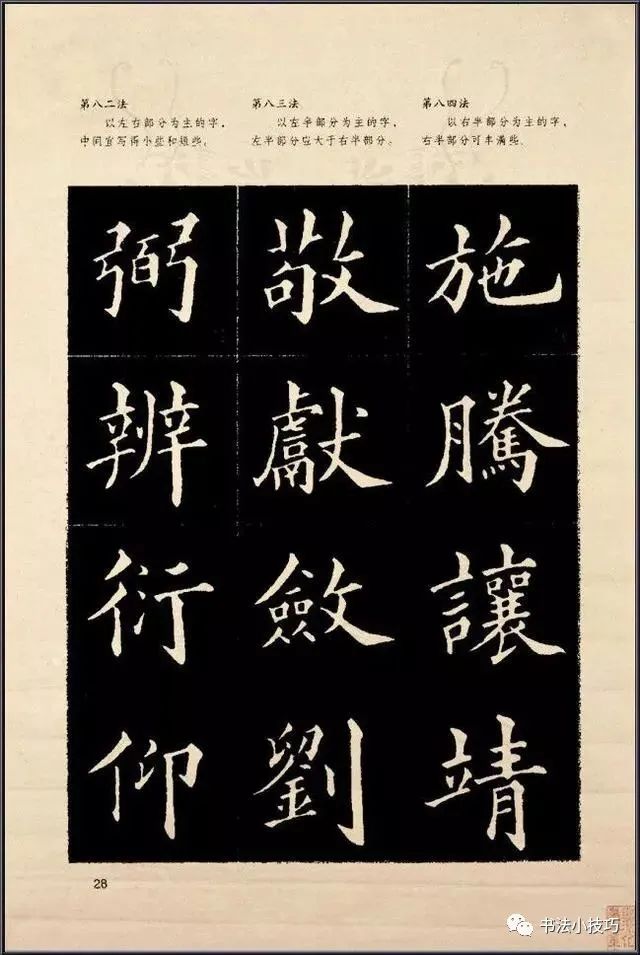 第八二法
以左右部分为主的字，
中间宜写得小些和短些。
第八三法
以左半部分为主的字，
左半部分应大于右半部分。
第八四法
以右半部分为主的字，
右半部分可丰满些。
弼 敬 施
辨 獻 騰
衍 斂 讓
仰 劉 靖
28
书法小技巧